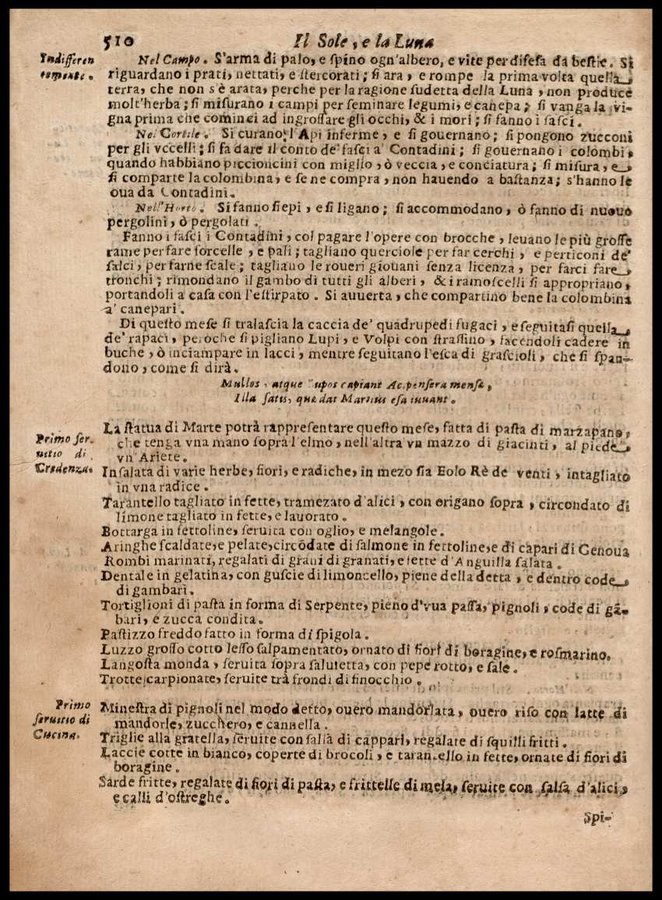 510 Il Sole, e la Luna
Indifferen
temente.
Nel Campo. S'arma di palo, e spino ogn'albero, e vite per difesa da bestie. Si
riguardano i prati, nettati, e stercorati; si ara, e rompe la prima volta quella
terra, che non s'è arata, perche per la ragione sudetta della Luna, non produce
molt'herba; si misurano i campi per seminare legumi, e canepa; si vanga la vi-
gna prima che cominci ad ingrossare gli occhi, & i mori; si fanno i fasci.
Nel Cortile. Si curano l'Api inferme, e si gouernano; si pongono zucconi
per gli vccelli; si fa dare il conto de' fasci a' Contadini; si gouernano i colombi,
quando habbiano piccioncini con miglio, ò veccia, e conciatura; si misura, e
si comparte la colombina, e se ne compra, non hauendo a bastanza; s'hanno le
oua da Contadini.
Nell'Horto. Si fanno siepi, e si ligano; si accommodano, ò fanno di nuouo
pergolini, ò pergolati.
Fanno i fasci i Contadini, col pagare l'opere con brocche, leuano le più grosse
rame per fare forcelle, e pali; tagliano querciole per far cerchi, e perticoni de'
salci, per farne scale; tagliano le roueri giouani senza licenza, per farci fare
tronchi; rimondano il gambo di tutti gli alberi, & i ramoscelli si appropriano,
portandoli a casa con l'estirpato. Si auuerta, che compartino bene la colombina
a' canepari.
Di questo mese si tralascia la caccia de' quadrupedi fugaci, e seguitasi quella
de' rapaci, peroche si pigliano Lupi, e Volpi con strassino, facendoli cadere in
buche, ò inciampare in lacci, mentre seguitano l'esca di grascioli, che si span-
dono, come si dirà.
Mullos, atque Lupos capiant Acipensera mense,
Illa satis, quæ dat Martius esa iuuant.
Primo ser-
uitio di
Credenza.
La statua di Marte potrà rappresentare questo mese, fatta di pasta di marzapano,
che tenga vna mano sopra l'elmo, nell'altra vn mazzo di giacinti, al piede
vn'Ariete.
Insalata di varie herbe, fiori, e radiche, in mezo sia Eolo Rè de venti, intagliato
in vna radice.
Tarantello tagliato in fette, tramezato d'alici, con origano sopra, circondato di
limone tagliato in fette, e lauorato.
Bottarga in fettoline, seruita con oglio, e melangole.
Aringhe scaldate, e pelate, circōdate di salmone in fettoline, e di capari di Genoua
Rombi marinati, regalati di grani di granati, e fette d'Anguilla salata.
Dentale in gelatina, con guscie di limoncello, piene della detta, e dentro code
di gambari.
Tortiglioni di pasta in forma di Serpente, pieno d'vua passa, pignoli, code di gā-
bari, e zucca condita.
Pastizzo freddo fatto in forma di spigola.
Luzzo grosso cotto lesso salpamentato, ornato di fiori di boragine, e rosmarino.
Langosta monda, seruita sopra salutetta, con pepe rotto, e sale.
Trotte carpionate, seruite trà frondi di finocchio.
Primo
seruitio di
Cucina.
Minestra di pignoli nel modo detto, ouero mandorlata, ouero riso con latte di
mandorle, zucchero, e cannella.
Triglie alla gratella, seruite con salsa di cappari, regalate di squilli fritti.
Laccie cotte in bianco, coperte di brocoli, e tarantello in fette, ornate di fiori di
boragine.
Sarde fritte, regalate di fiori di pasta, e frittelle di mela, seruite con salsa d'alici,
e calli d'ostreghe.
Spi-